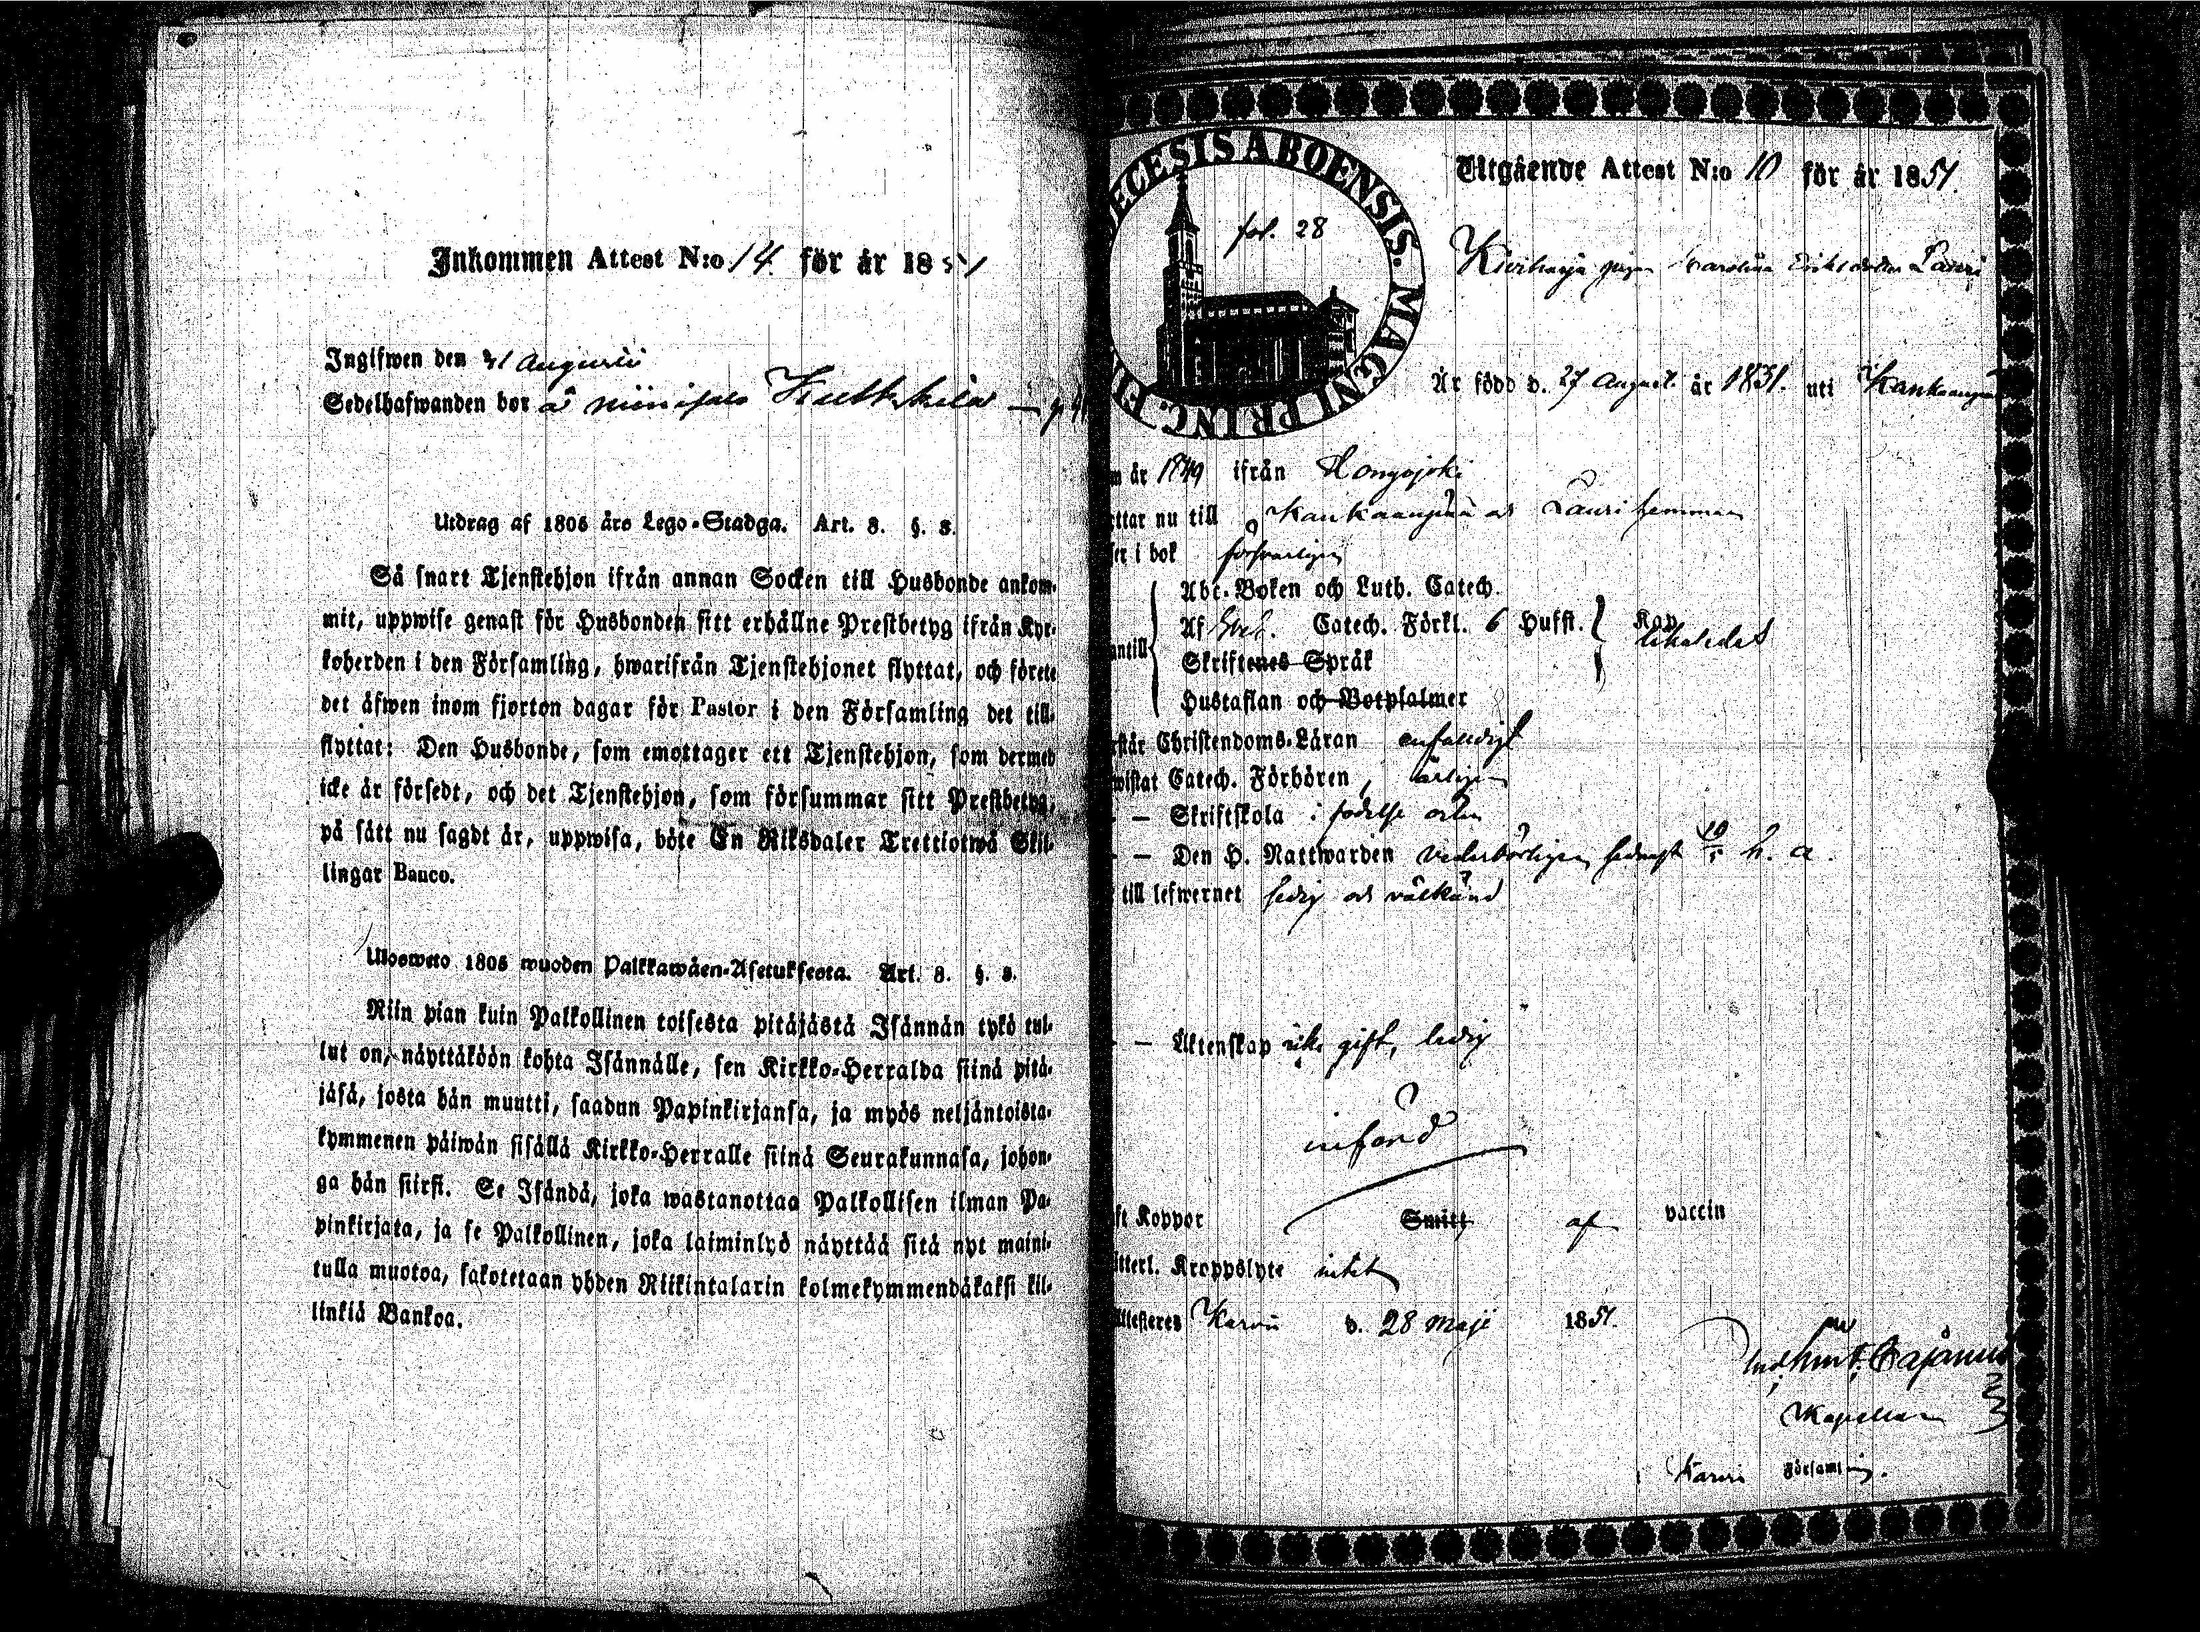 Inkommen Attest N:o 14. för år 1851
Ingifwen den 31 Augusti
Sedelhafwanden bor å
Utdrag af 1805 års Lego-Stadga. Art. 8. §. 8.
Så snart Tjenstehjon ifrån annan Socken till Husbonde ankom-
mit, uppwise genast för Husbonden sitt erhållne Prestbetyg ifrån Kyr-
koherden i den Församling, hwarifrån Tjenstehjonet flyttat, och förete
det äfwen inom fjorton dagar för Pastor i den Församling det till-
flyttat: Den Husbonde, som emottager ett Tjenstehjon, som dermed
icke är försedt, och det Tjenstehjon, som försummar sitt Prestbetyg,
på sätt nu sagdt är, uppwisa, böte En Riksdaler Trettiotwå Skil-
lingar Banco.
Ulosweto 1805 wuoden Palkkawäen-Asetuksesta. Art. 8. §. 8.
Niin pian kuin Palkollinen toisesta pitäjästä Isännän tykö tul-
lut on, näyttäköön kohta Isännälle, sen Kirkko-Herralda siinä pitä-
jäsä, josta hän muutti, saadun Papinkirjansa, ja myös neljäntoista-
kymmenen päiwän sisällä Kirkko-Herralle siinä Seurakunnasa, johon-
ga hän siirsi. Se Isändä, joka wastanottaa Palkollisen ilman Pa-
pinkirjata, ja se Palkollinen, joka laiminlyö näyttää sitä nyt maini-
tulla muotoa, sakotetaan yhden Riikintalarin kolmekymmendäkaksi kil-
linkiä Bankoa.
ECESIS ABOENSIS. MAGNI PRINC. FI
fol. 28
Utgående Attest N:o 10 för år 1851.
Kiviharju pigan Karolina Eriksdotter Lauri
Är född d. 27 August. år 1831. uti Kankaanpää
m år 1849 ifrån Hongojoki
ttar nu till Kankaanpää och Lauri hemman
ser i bok försvarligen
antill
Abc-Boken och Luth. Catech.
Af Catech. Förkl. 6 Hufst.
Skriftenes Språk
Hustaflan och Botpsalmer
rstår Christendoms-Läran enfaldigt
wistat Catech. Förhören årligen
— Skriftskola i födelse orten
— Den H. Nattwarden vederbörligen senast 10/5 h. a.
till lefwernet ledig och välkänd
— Äktenskap icke gift, ledig
införd
ft Koppor Smitt af vaccin
tterl. Kroppslyte intet
Attesteres Karvia d. 28 Maji 1851.
Cajanus
Kapellan
i Karvia Församling.